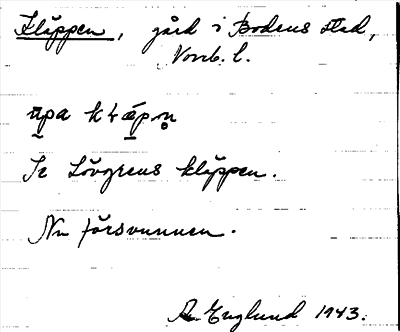 Kläppen, gård i Bodens stad,
Norrb. l.
ɑpa kɫæpn̥
Se Lövgrens kläppen.
Nu försvunnen.
A. Englund 1943.